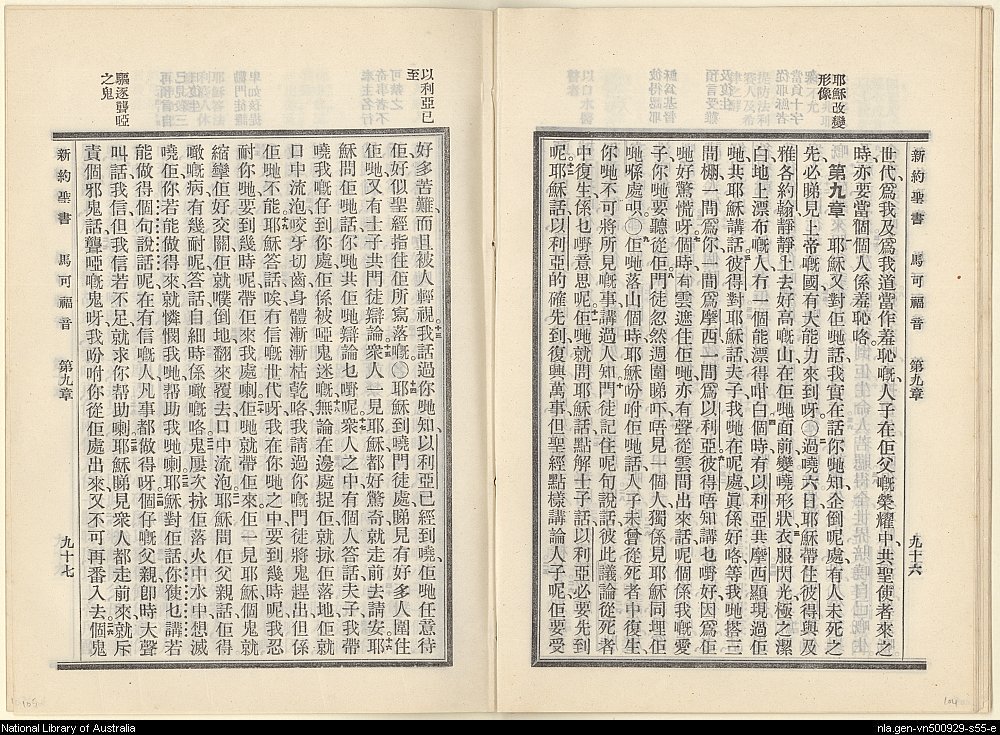 新約聖書　馬可福音　第九章　九十六
耶穌改變
形像
世代、爲我及爲我道當作羞恥嘅、人子在佢父嘅榮耀中、共聖使者來之
時、亦要當個個人係羞恥咯。
第九章　耶穌又對佢哋話、我實在話你哋知、企倒呢處有人未死之
先、必睇見上帝嘅國有大能力來到呀。○過嘵六日、耶穌帶住彼得與及
雅各約翰、靜靜上去好高嘅山、在佢哋面前變嘵形狀、衣服閃光極之潔
白、地上漂布嘅人、冇一個能漂得咁白、個時有以利亞共摩西顯現過佢
哋、共耶穌講話、彼得對耶穌話、夫子、我哋在呢處眞係好咯、等我哋搭三
間棚、一間爲你、一間爲摩西、一間爲以利亞、彼得唔知講乜嘢好、因爲佢
哋好驚慌呀、個時有雲遮住佢哋、亦有聲從雲間出來話、呢個係我嘅愛
子、你哋要聽從佢、門徒忽然週圍睇吓、唔見一個人、獨係見耶穌同埋佢
哋喺處呮。○佢哋落山個時、耶穌吩咐佢哋話、人子未曾從死者中復生、
你哋不可將所見嘅事講過人知、門徒記住呢句說話、彼此議論從死者
中復生、係乜嘢意思呢、佢哋就問耶穌話、點解士子話、以利亞必要先到
呢、耶穌話、以利亞的確先到、復興萬事、但聖經點樣講論人子呢、佢要受
以利亞已
至
好多苦難、而且被人輕視、我話過你哋知、以利亞已經到嘵、佢哋任意待
佢、好似聖經指住佢所寫落嘅。○耶穌到嘵門徒處、睇見有好多人圍住
佢哋、又有士子共門徒辯論、衆人一見耶穌、都好驚奇、就走前去請安、耶
穌問佢哋話、你哋共佢哋辯論乜嘢呢、衆人之中有個人答話、夫子、我帶
嘵我嘅仔到你處、佢係被啞鬼迷嘅、無論在邊處捉佢、就拯佢落地、佢就
口中流泡、咬牙切齒、身體漸漸枯乾咯、我請過你嘅門徒將鬼趕出、但係
佢哋不能、耶穌答話、唉、冇信嘅世代呀、我在你哋之中、要到幾時呢、我忍
耐你哋、要到幾時呢、帶佢來我處喇、佢哋就帶佢來、佢一見耶穌、個鬼就
縮攣佢好交關、佢就噗倒地、翻來覆去、口中流泡、耶穌問佢父親話、佢得
噉嘅病、有幾耐呢、答話、自細時係噉嘅咯、鬼屢次拯佢落火中水中、想滅
嘵佢、你若能做得來、就憐憫我哋、幫助我哋喇、耶穌對佢話、你使乜講若
能做得個句說話呢、在有信嘅人、凡事都做得呀、個仔嘅父親卽時大聲
叫話、我信、但我信若不足、就求你幫助喇、耶穌睇見衆人都走前來、就斥
責個邪鬼話、聾啞嘅鬼呀、我吩咐你從佢處出來、又不可再番入去、個鬼
驅逐聾啞
之鬼
新約聖書　馬可福音　第九章　九十七
National Library of Australia
nla.gen-vn500929-s55-e